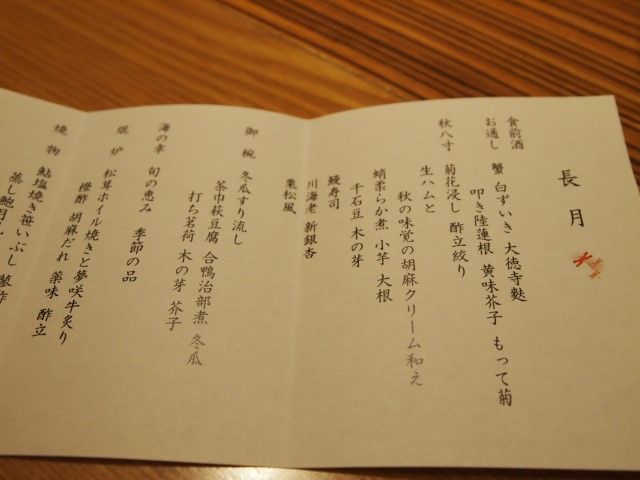 長月
食前酒
お通し 蟹 白ずいき 大徳寺麩
叩き陸蓮根 黄味芥子 もって菊
秋八寸 菊花浸し 酢立絞り
生ハムと
秋の味覚の胡麻クリーム和え
蛸柔らか煮 小芋 大根
千石豆 木の芽
鰻寿司
川海老 新銀杏
栗松風
御椀 冬瓜すり流し
茶巾萩豆腐 合鴨治部煮 冬瓜
打ち茗荷 木の芽 芥子
海の幸 旬の恵み 季節の品
焜炉 松茸ホイル焼きと夢咲牛炙り
橙酢 胡麻だれ 薬味 酢立
焼物 鮎塩焼き笹いぶし 蓼酢
蒸し鮑